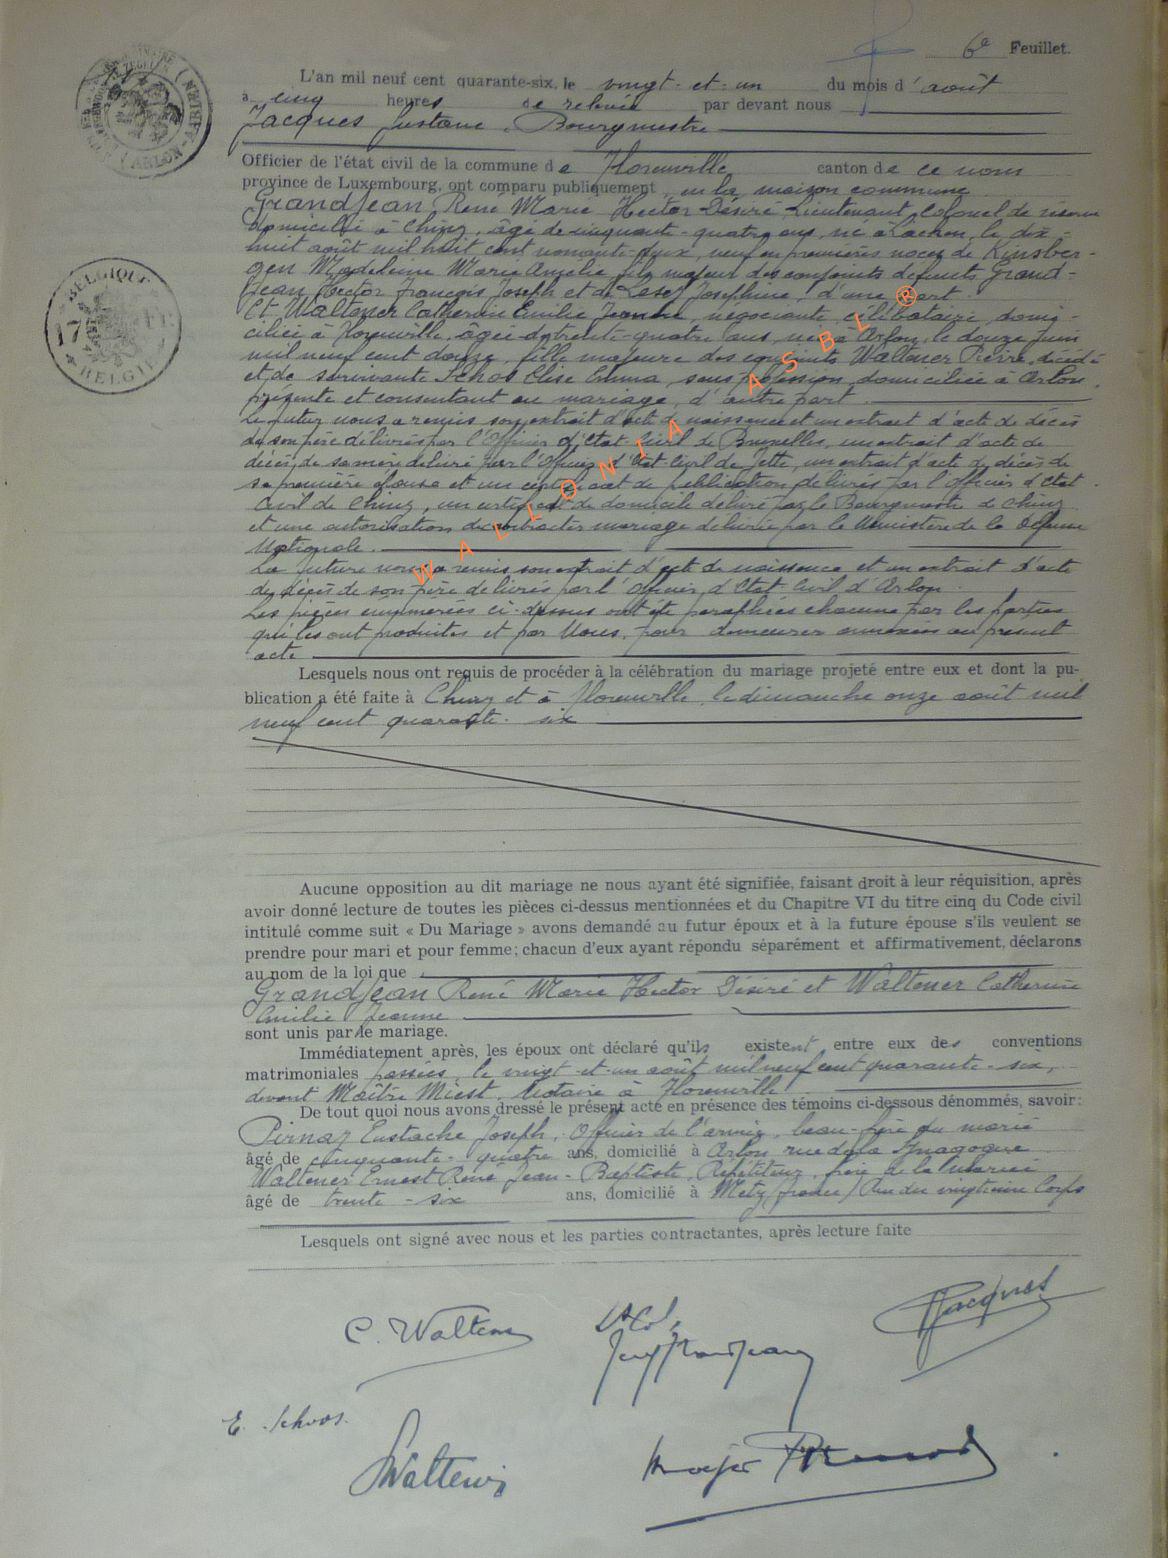 6e Feuillet.
L'an mil neuf cent quarante-six, le vingt-et-un du mois d'août
à cinq heures de relevée par devant nous
Jacques Gustave, Bourgmestre
Officier de l'état civil de la commune de Florenville canton de ce nom
province de Luxembourg, ont comparu publiquement en la maison commune
GrandJean René Marie Hector Désiré, Lieutenant Colonel de réserve
domicilié à Chiny, âgé de cinquante-quatre ans, né à Laeken, le dix-
huit août mil huit cent nonante-deux, veuf en premières noces de Kinsber-
gen Magdeleine Marie Angélie, fils majeur des conjoints défunts Grand-
Jean Hector François Joseph et de Josephine, d'une part.
Et Waltener Catherine Emilie Jeanne, négociante, célibataire, domi-
ciliée à Florenville, âgée de trente-quatre ans, née à Arlon, le douze juin
mil neuf cent douze, fille majeure des conjoints Waltener Pierre, décédé
et de survivante Schos Elise Emma, sans profession, domiciliée à Arlon,
présente et consentant au mariage, d'autre part.
Le futur nous a remis son extrait d'acte de naissance et un extrait d'acte de décès
de son père délivrés par l'Officier d'Etat-Civil de Bruxelles, un extrait d'acte de
décès de sa mère délivré par l'Officier d'Etat-Civil de Jette, un extrait d'acte de décès de
sa première épouse et un certificat de publication délivrés par l'Officier d'Etat
Civil de Chiny, un certificat de domicile délivré par le Bourgmestre de Chiny
et une autorisation de contracter mariage délivrée par le Ministère de la Défense
Nationale.
La future nous a remis son extrait d'acte de naissance et un extrait d'acte
de décès de son père délivrés par l'Officier d'Etat-Civil d'Arlon.
Les pièces énumérées ci-dessus ont été paraphées chacune par les parties
qui les ont produites et par Nous, pour demeurer annexées au présent
acte
Lesquels nous ont requis de procéder à la célébration du mariage projeté entre eux et dont la pu-
blication a été faite à Chiny et à Florenville, le dimanche onze août mil
neuf cent quarante-six
Aucune opposition au dit mariage ne nous ayant été signifiée, faisant droit à leur réquisition, après
avoir donné lecture de toutes les pièces ci-dessus mentionnées et du Chapitre VI du titre cinq du Code civil
intitulé comme suit « Du Mariage » avons demandé au futur époux et à la future épouse s'ils veulent se
prendre pour mari et pour femme; chacun d'eux ayant répondu séparément et affirmativement, déclarons
au nom de la loi que
GrandJean René Marie Hector Désiré et Waltener Catherine
Emilie Jeanne
sont unis par le mariage.
Immédiatement après, les époux ont déclaré qu'ils existent entre eux des conventions
matrimoniales passées, le vingt-et-un août mil neuf cent quarante-six,
devant Maître Miest, Notaire à Florenville
De tout quoi nous avons dressé le présent acte en présence des témoins ci-dessous dénommés, savoir:
Pirnay Eustache Joseph, Officier de l'armée, beau-frère du marié
âgé de cinquante-quatre ans, domicilié à Arlon, rue de la Synagogue
Waltener Ernest René Jean-Baptiste, Répétiteur, frère de la mariée
âgé de trente-six ans, domicilié à Metz (France) Rue du vingtième Corps
Lesquels ont signé avec nous et les parties contractantes, après lecture faite
C. Waltener
Lt Col.
GrandJean
Jacques
E. Schoos.
Waltener
Major
BELGIQUE
BELGIË
ARLON
WALLONIA ASBL ®